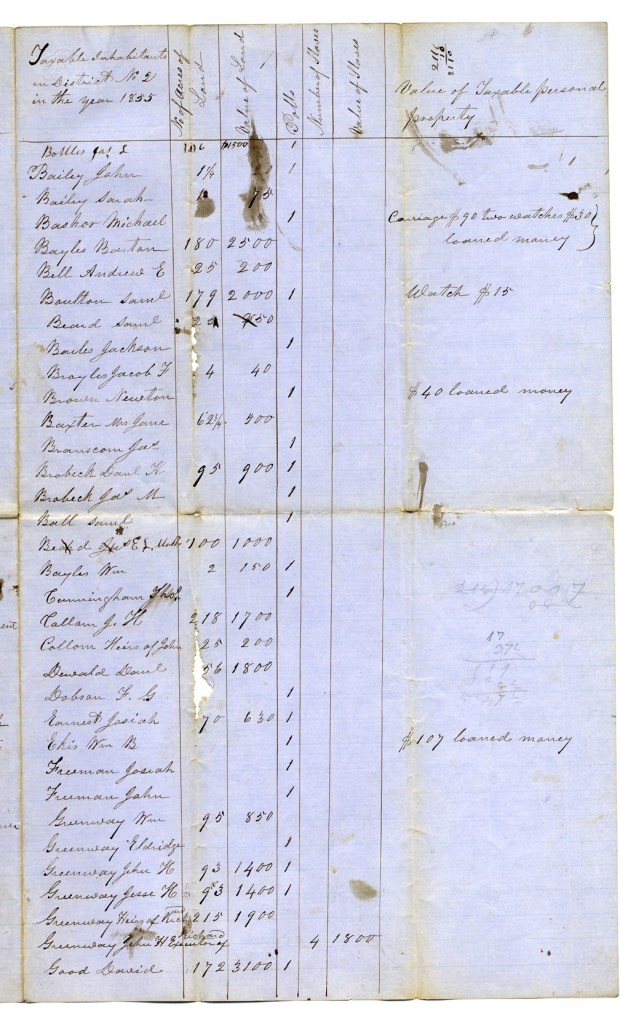 Taxable Inhabitants
in District No 2
in the year 1855
No of acres of Land
Value of Land
Polls
Number of Slaves
Value of Slaves
Value of Taxable personal
property
216
10
2160
Bottles Jas L 106 $1500 1
Bailey John 1¼ 1 1
Bailey Sarah 75
Bashor Michael 1 Carriage $90 two watches $30
loaned money
Bayles Barton 180 2500
Bell Andrew E 25 200
Boulton Saml 179 2000 1 Watch $15
Beard Saml 50
Bailes Jackson 1
Broyles Jacob F 4 40
Brown Newton 1 $40 loaned money
Baxter Mrs Jane 500
Branscom Jas 1
Brobeck Danl K 95 900 1
Brobeck Jas M 1
Ball Saml 1
Beard E 100 1000
Bayles Wm 2 150 1
Cunningham 1
Collom J. H 218 1700
Collom Heirs of John 25 200
Dewald Danl 56 1800
Dobson F. G 1
Earnest Josiah 70 630 1
Ekis Wm B 1 $107 loaned money
Freeman Josiah 1
Freeman John 1
Greenway Wm 95 850
Greenway Eldridge 1
Greenway John H 93 1400 1
Greenway Jesse H 93 1400 1
Greenway Heirs of Richard 215 1900
Greenway John H Executor of Richard 4 1800
Good David 172 3100 1
17